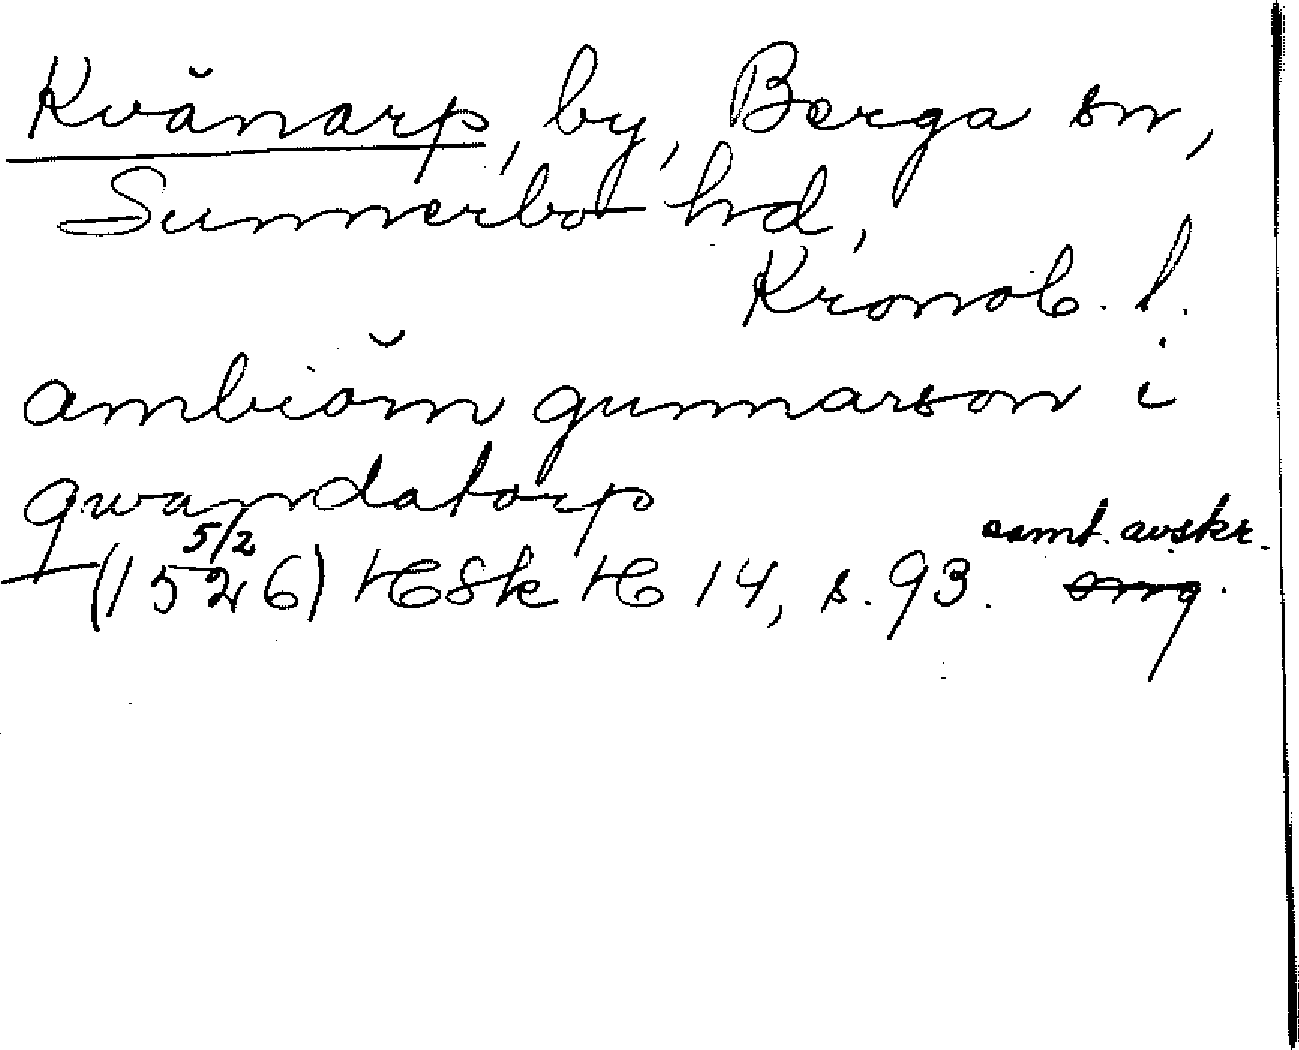 Kvänarp, by, Berga sn,
Sunnerbo hd,
Kronob. l.
ambiörn gunnarson i
qwandatorp
5/2 samt. avskr.
(1526) HSk H 14, s. 93. org.